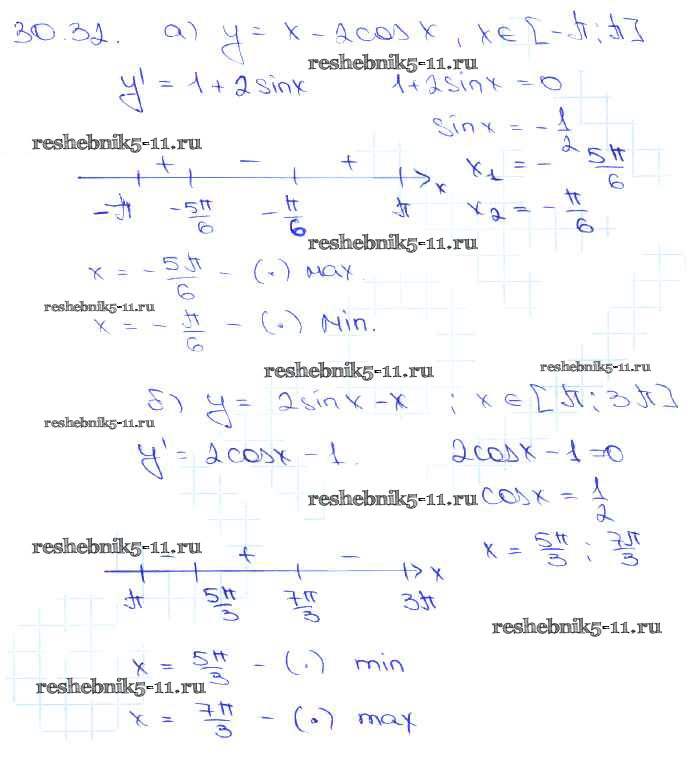 30.32. а) y = x - 2cosx, x∈[-π; π]
reshebnik5-11.ru
y' = 1+2sinx 1+2sinx = 0
sinx = -1/2
reshebnik5-11.ru
+ - + x
-π -5π/6 -π/6 π
x₁ = -5π/6
x₂ = -π/6
reshebnik5-11.ru
x = -5π/6 - (.) max.
reshebnik5-11.ru
x = -π/6 - (.) min.
reshebnik5-11.ru
reshebnik5-11.ru
б) y = 2sinx-x ; x∈[π; 3π]
reshebnik5-11.ru
y' = 2cosx-1. 2cosx-1=0
reshebnik5-11.ru
cosx = 1/2
reshebnik5-11.ru
x = 5π/3 ; 7π/3
- + - x
π 5π/3 7π/3 3π
reshebnik5-11.ru
x = 5π/3 - (.) min
reshebnik5-11.ru
x = 7π/3 - (.) max